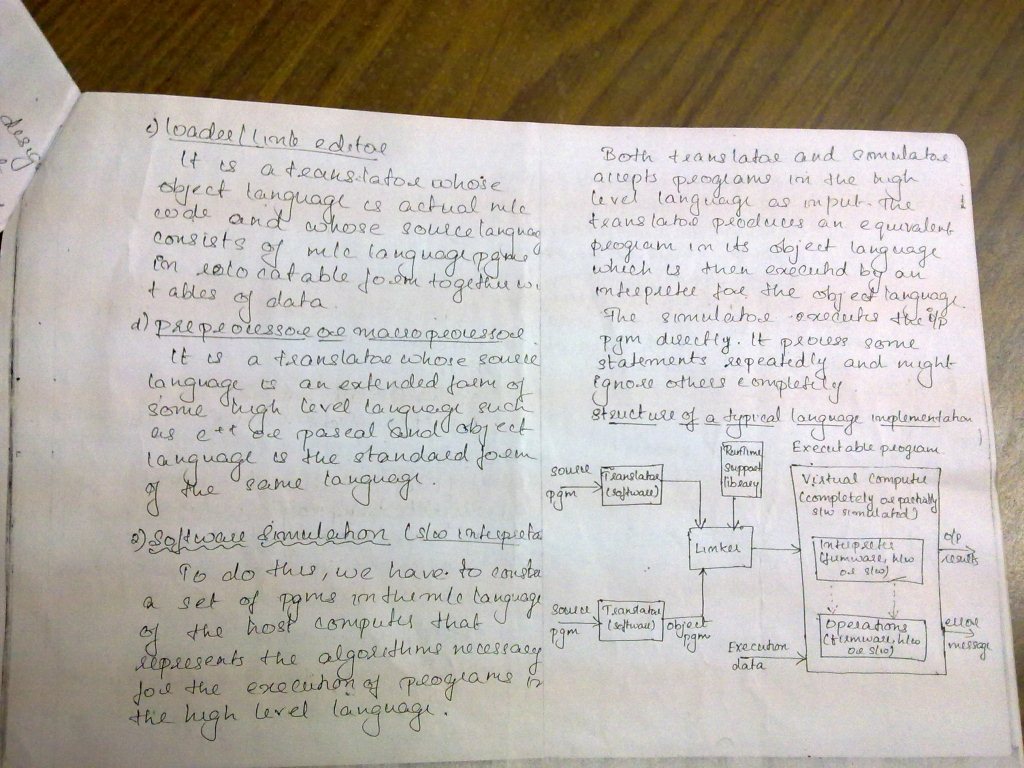 desig
c) loader/link editor
It is a translator whose
object language is actual m/c
code and whose source languag
consists of m/c language pgms
in relocatable form together wi
tables of data.
d) preprocessor or macroprocessor
It is a translator whose source
language is an extended form of
some high level language such
as c++ or pascal and object
language is the standard form
of the same language.
2) Software Simulation (s/w interpreta
To do this, we have to constr
a set of pgms in the m/c language
of the host computer that
represents the algorithms necessary
for the execution of programs in
the high level language.
Both translator and simulator
accepts programs in the high
level language as input. The
translator produces an equivalent
program in its object language
which is then executed by an
interpreter for the object language.
The simulator executes the i/p
pgm directly. It process some
statements repeatedly and might
ignore others completely
structure of a typical language implementation
Runtime
support
library
Executable program
source
pgm
Translator
(software)
Virtual computer
(completely or partially
s/w simulated)
Linker
Interpreter
(firmware, h/w
or s/w)
o/p
results
source
pgm
Translator
(software)
object
pgm
Operations
(firmware, h/w
or s/w)
error
message
Execution
data